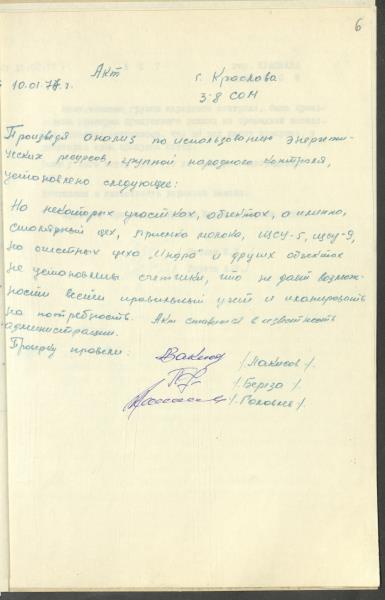 6
Акт
10.01.78 г.
г. Краслава
З-8 СОН
Произведя анализ по использованию энергети-
ческих ресурсов, группой народного контроля,
установлено следующее:
На некоторых участках, объектах, а именно,
столярный цех, приемка молока, ЩСУ-5, ЩСУ-9,
на очистных цеха "Индра" и других объектах
не установлены счетчики, что не даёт возмож-
ности вести правильный учёт и планировать
на потребность. Акт ставится в известность
администрации.
Проверку провели:
/Лакисов/.
/Берёза/.
/Головня/.